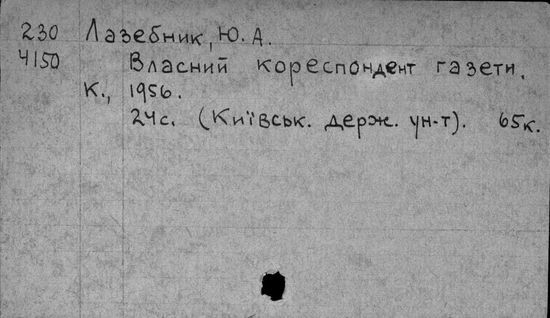 230 Лазебник, Ю. А.
4150 Власний кореспондент газети.
К., 1956.
24с. (Київськ. держ. ун-т). 65к.